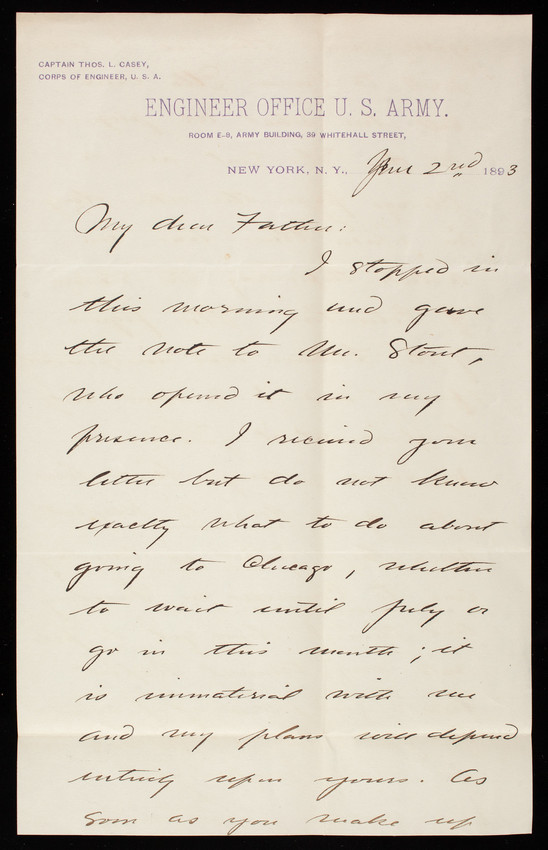 CAPTAIN THOS. L. CASEY,
CORPS OF ENGINEER, U. S. A.
ENGINEER OFFICE U. S. ARMY.
ROOM E-8, ARMY BUILDING, 39 WHITEHALL STREET,
NEW YORK, N. Y., June 2nd 1893
My dear Father:
I stopped in
this morning and gave
the note to Mr. Stout,
who opened it in my
presence. I received your
letter but do not know
exactly what to do about
going to Chicago, whether
to wait until July or
go in this month; it
is immaterial with me
and my plans will depend
entirely upon yours. As
soon as you make up